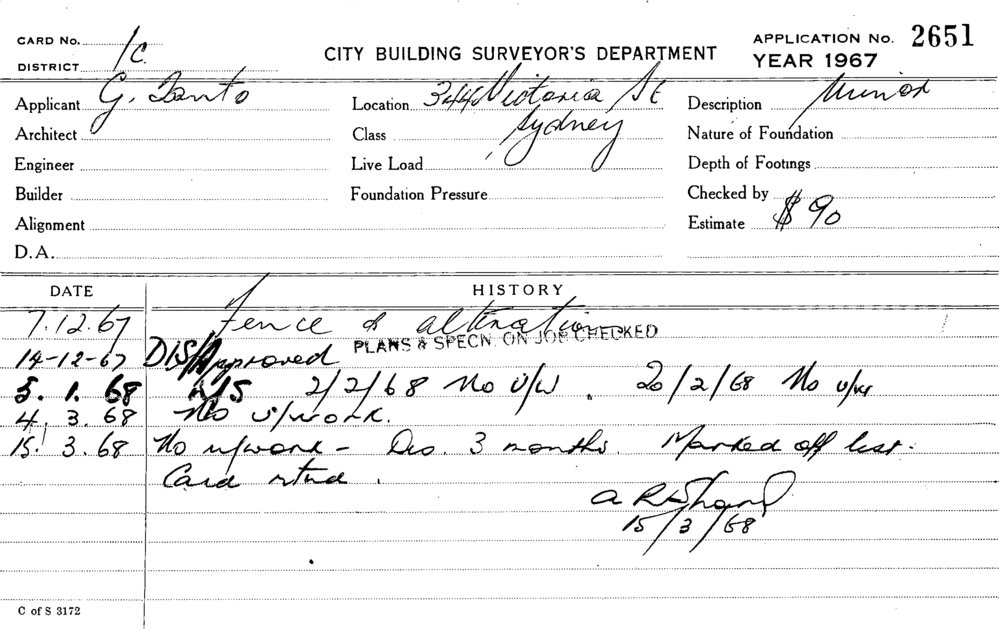 CARD No. 1c.
DISTRICT
CITY BUILDING SURVEYOR'S DEPARTMENT
APPLICATION No. 2651
YEAR 1967
Applicant G.
Location 344 Victoria St
Sydney
Description Minor
Architect
Class
Nature of Foundation
Engineer
Live Load
Depth of Footings
Builder
Foundation Pressure
Checked by
Alignment
Estimate $90
D.A.
DATE HISTORY
7.12.67 Fence & alteration
PLANS & SPECN. ON JOB CHECKED
14-12-67 DIS/Approved
5. 1. 68 2/2/68 No U/W. 20/2/68 No u/w
4. 3. 68 No u/work.
15. 3. 68 No u/work - Dis. 3 months. Marked off list.
Card rtnd.
15/3/68
C of S 3172